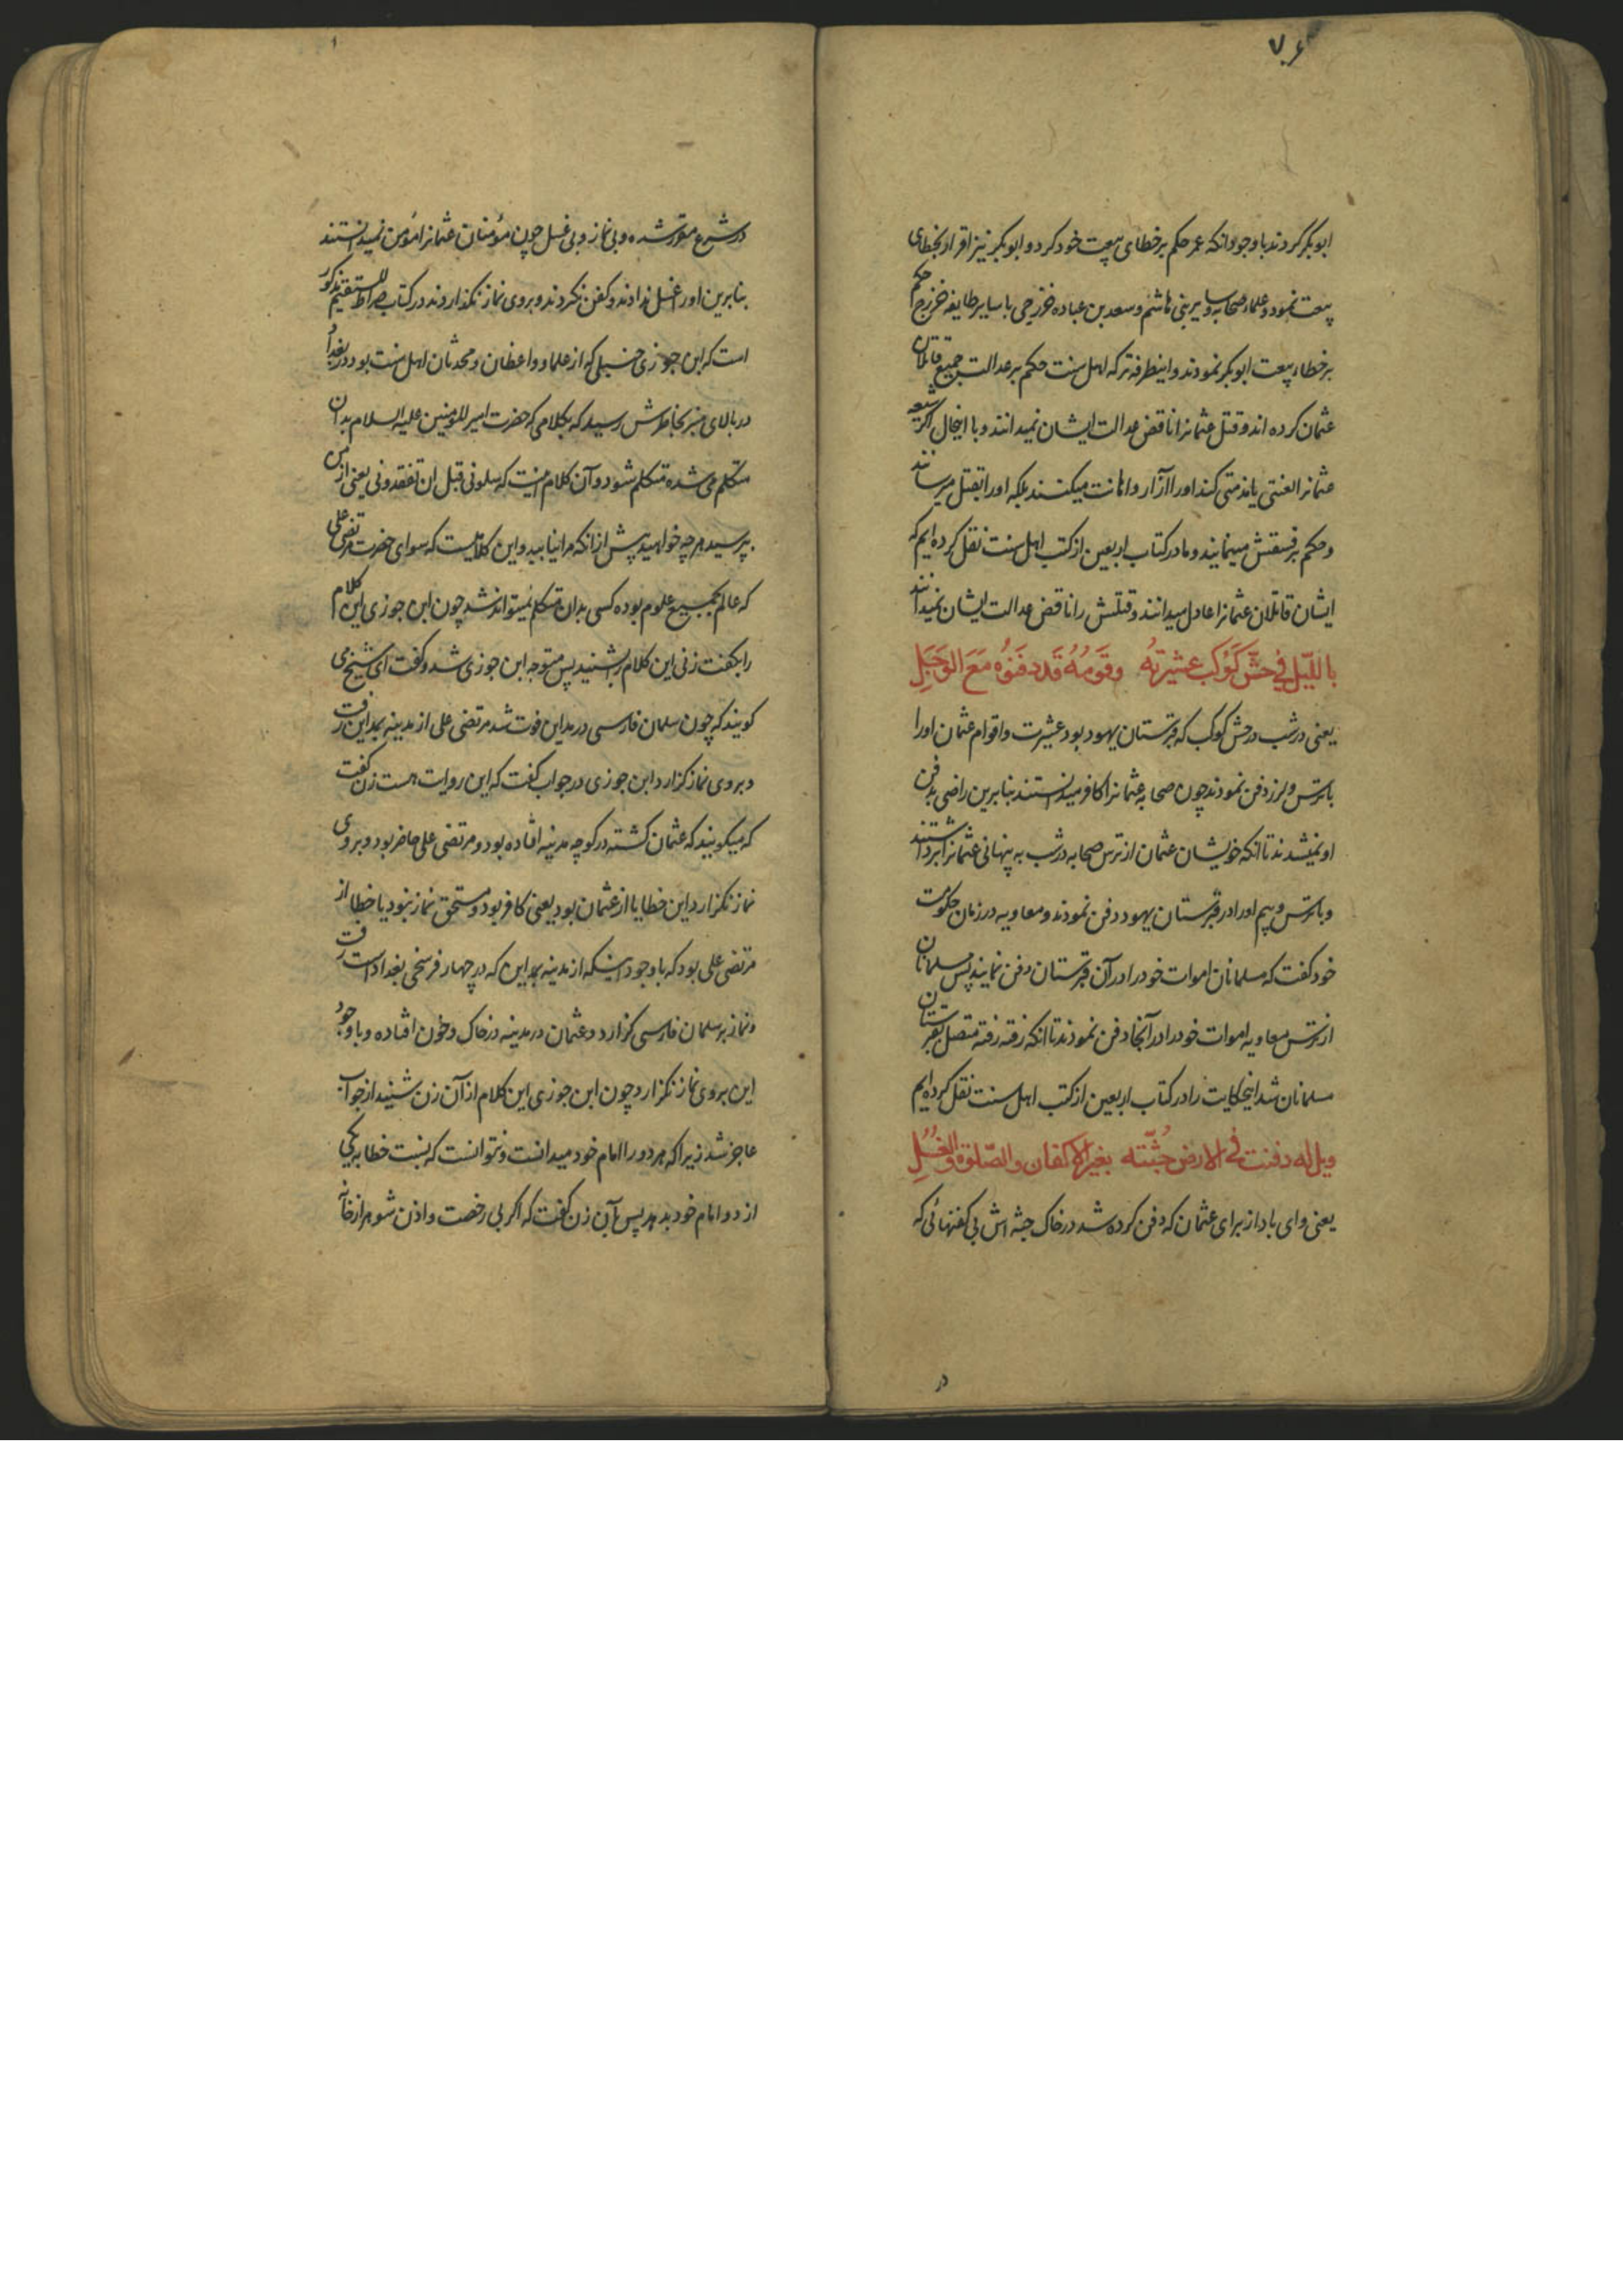 ۷۶
ابوبکر کردند باوجود انکه عمر حکم برخطای بیعت خود کرد و ابوبکر نیز اقرار بخطای
بیعت نمود و علماء صحابه و سایر بنی هاشم و سعد بن عباده خزرجی با سایر طایفه خزرج حکم
برخطاء بیعت ابوبکر نمودند و اینطرفه تر که اهل سنت حکم بر عدالت جمیع قاتلان
عثمان کرده اند و قتل عثمانرا ناقض عدالت ایشان نمیدانند و با اینحال اگر شیعه
عثمانرا لعنتی یا مذمتی کند اورا آزار و اهانت میکنند بلکه اورا بقتل میرسانند
و حکم بر فسقش مینمایند و ما در کتاب اربعین از کتب اهل سنت نقل کرده ایم که
ایشان قاتلان عثمانرا عادل میدانند و قتلش را ناقض عدالت ایشان نمیدانند
باللّیل فی حشّ کَوکب عشیرتهُ وقَومُهُ قَد دفَنوُه مَعَ الوَجَلِ
یعنی در شب در حش کوکب که قبرستان یهود بود عشیرت و اقوام عثمان اورا
باترس و لرز دفن نمودند چون صحابه عثمانرا کافر میدانستند بنابرین راضی بدفن
او نمیشدند تا انکه خویشان عثمان از ترس صحابه در شب به پنهانی عثمانرا برداشتند
و باترس و بیم اورا در قبرستان یهود دفن نمودند و معاویه در زمان حکومت
خود گفت که مسلمانان اموات خود را در آن قبرستان دفن نمایند پس مسلمانان
از ترس معاویه اموات خود را در آنجا دفن نمودند تا انکه رفته رفته متصل بقبرستان
مسلمانان شد اینحکایت را در کتاب اربعین از کتب اهل سنت نقل کرده ایم
ویل له دفنت فی الارض جُثّته بغیر الاکفان والصّلوة والغُسُلِ
یعنی وای باد از برای عثمان که دفن کرده شد در خاک جثه اش بی کفنهائی که
در
در شرع مقرر شده و بی نماز و بی غسل چون مؤمنان عثمانرا مؤمن نمیدانستند
بنابرین اورا غسل ندادند و کفن نکردند و بر وی نماز نگذاردند در کتاب صراط المستقیم مذکور
است که ابن جوزی حنبلی که از علما و واعظان و محدثان اهل سنت بود در بغداد
در بالای منبر بخاطرش رسید که بکلامی که حضرت امیر المؤمنین علیه السلام بدان
متکلم می شده متکلم شود و آن کلام اینست که سلونی قبل ان تفقدونی یعنی از من
بپرسید هر چه خواهید پیش از انکه مرا نیابید و این کلامیست که سوای حضرت مرتضی علی
که عالم بجمیع علوم بوده کسی بدان متکلم نمیتواند شد چون ابن جوزی این کلام
را بگفت زنی این کلام را بشنید پس متوجه ابن جوزی شد و گفت ای شیخ می
گویند که چون سلمان فارسی در مداین فوت شد مرتضی علی از مدینه بمداین رفت
و بر وی نماز گزارد ابن جوزی در جواب گفت که این روایت هست زن گفت
که میگویند که عثمان کشته در کوچه مدینه افتاده بود و مرتضی علی حاضر بود و بر وی
نماز نگزارد این خطا یا از عثمان بود یعنی کافر بود و مستحق نماز نبود یا خطا از
مرتضی علی بود که باوجود اینکه از مدینه بمداین که در چهار فرسخی بغداد است رفت
و نماز بر سلمان فارسی گزارد و عثمان در مدینه در خاک و خون افتاده و باوجود
این بر وی نماز نگزارد چون ابن جوزی این کلام از آن زن شنید از جواب
عاجز شد زیرا که هر دو را امام خود میدانست و نتوانست که نسبت خطا به یکی
از دو امام خود بدهد پس بآن زن گفت که اگر بی رخصت و اذن شوهر از خانه